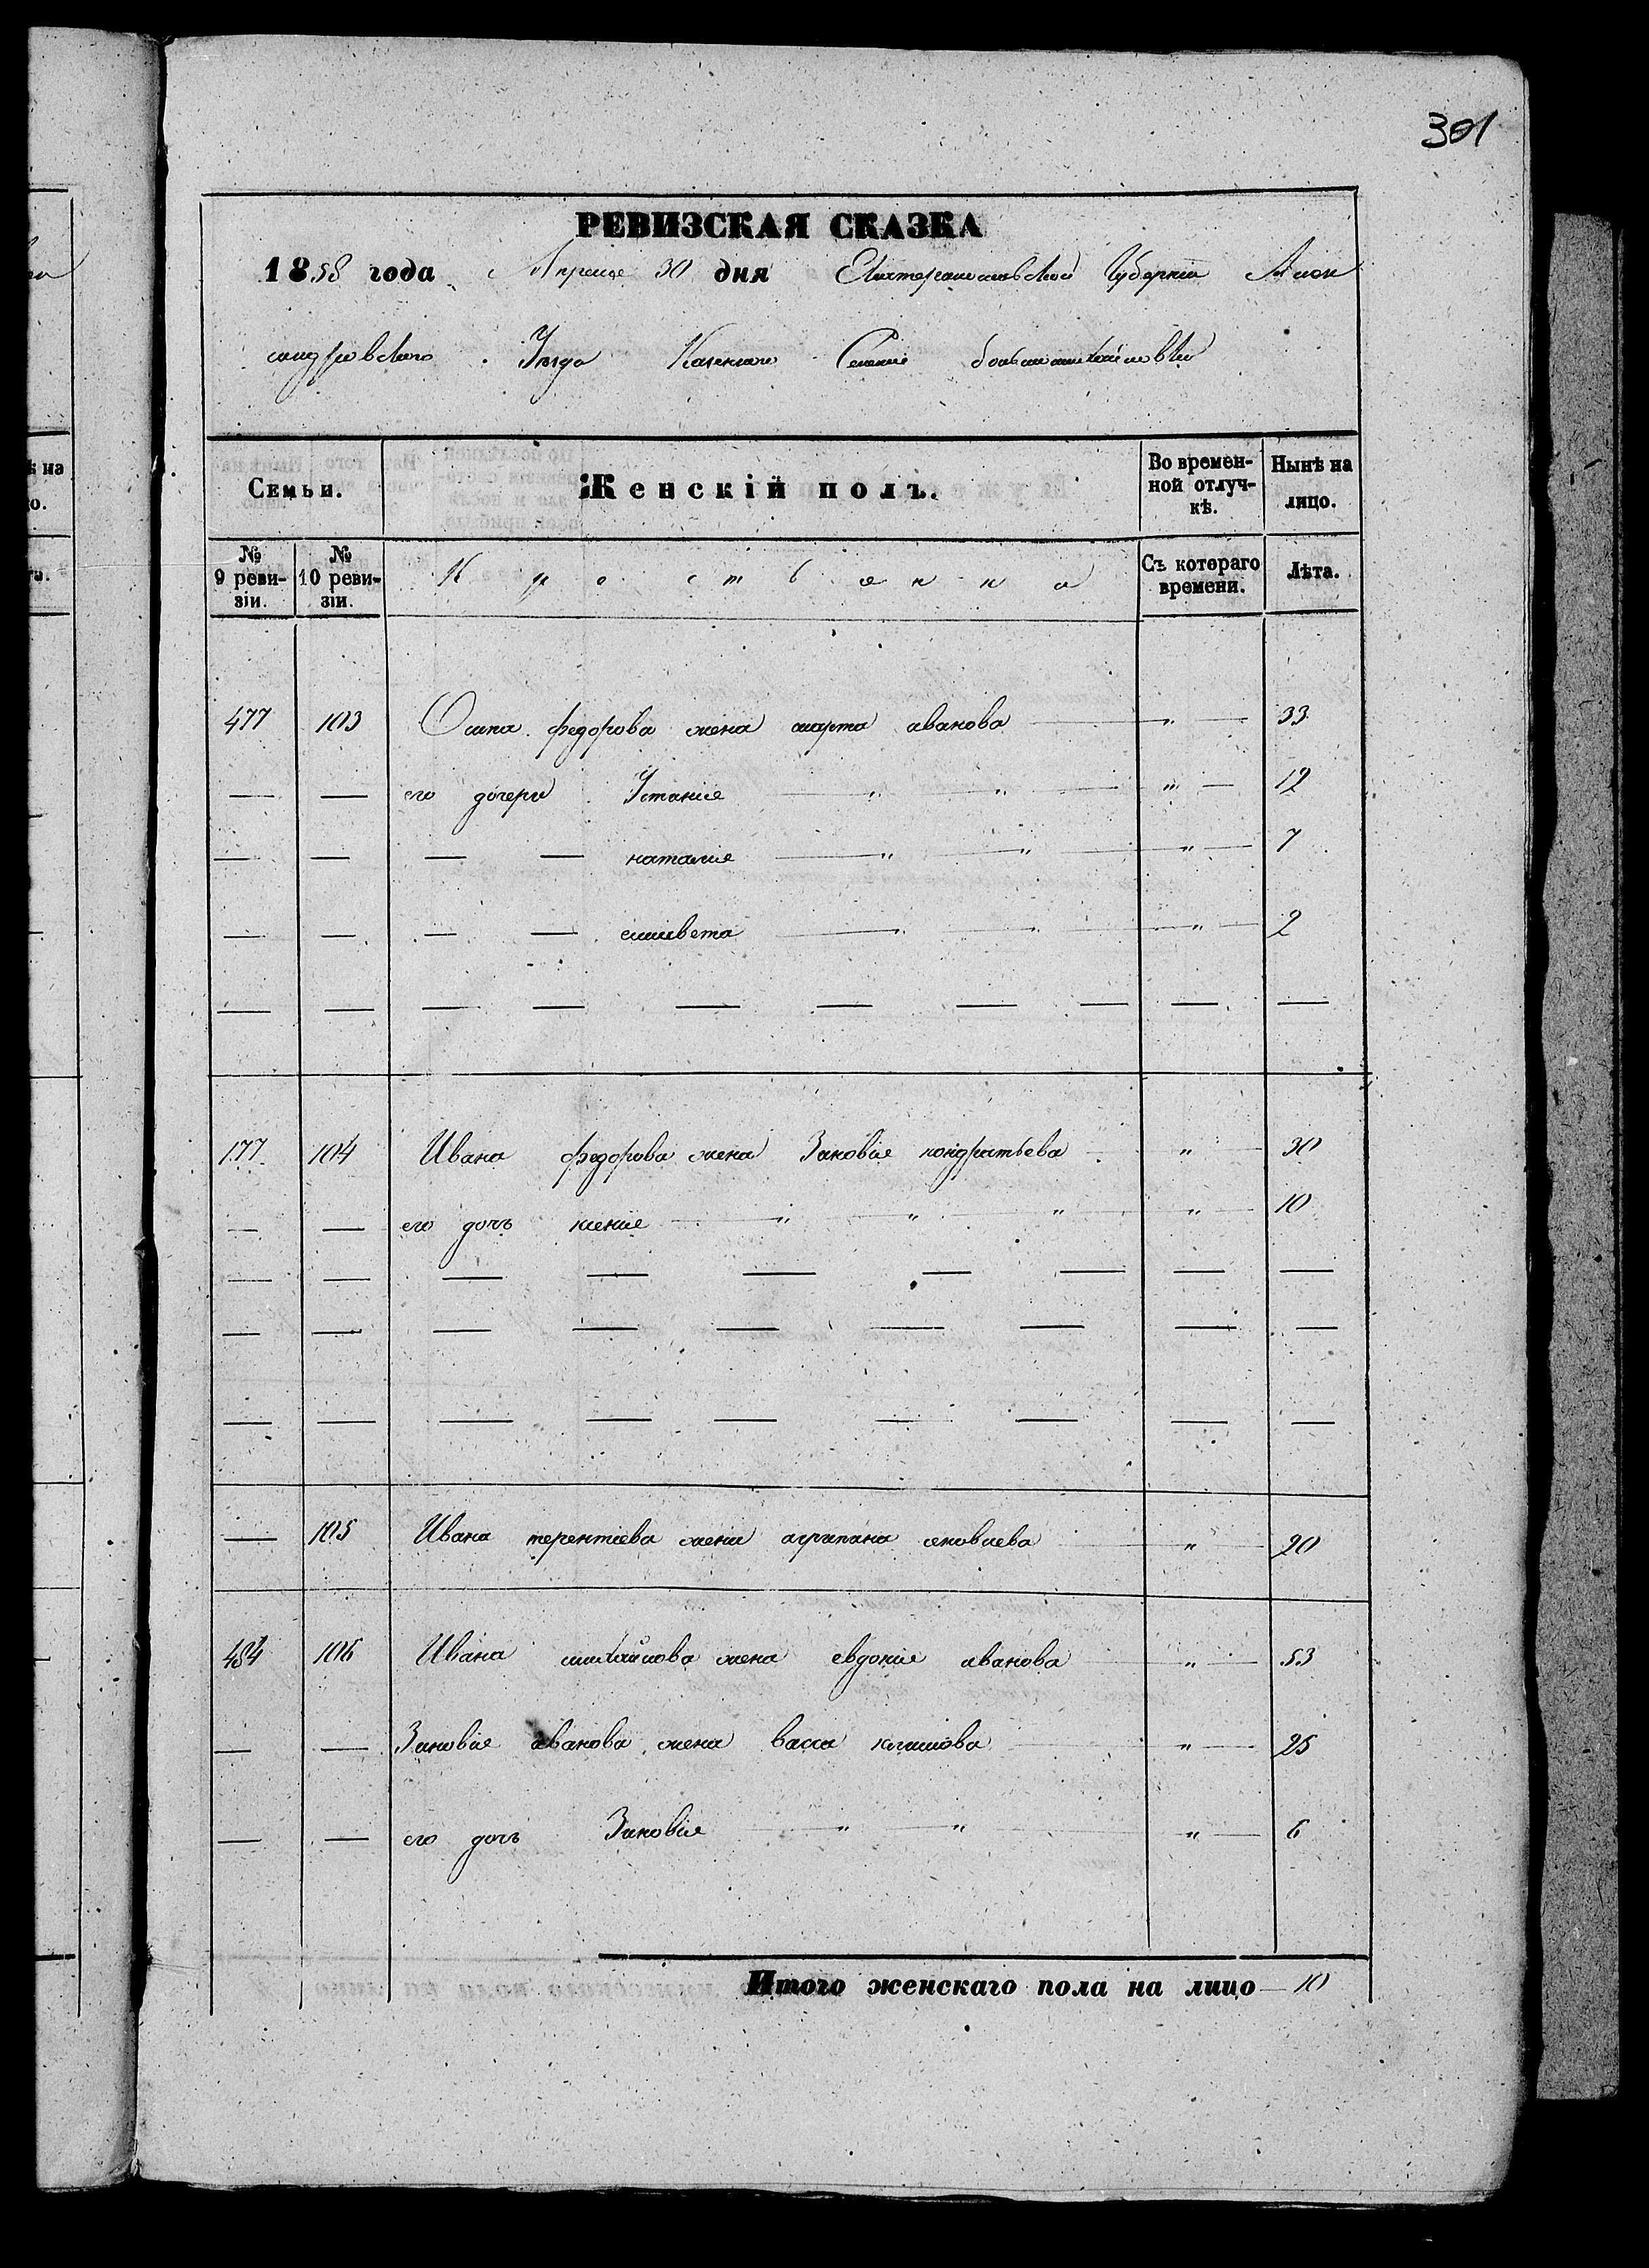 301
РЕВИЗСКАЯ СКАЗКА
1858 года Апреля 30 дня Екатеринославской Губернии Алек
сандровского Уезда Казенного Селения большемихайловки
Семьи. Женскій полъ. Во времен-ной отлуч-кѣ. Нынѣ на лицо.
№ 9 реви-зіи. № 10 реви-зіи. Съ котораго времени. Лѣта.
477 103 Осипа федорова жена марта иванова " 33
его дочери Устинiя " " " 12
наталiя " " " 7
елисвета " " " 2
177 104 Ивана федорова жена Зиновiя кондратьева " 30
его дочь ксенiя " " " " 10
105 Ивана терентiева жена агрипина " 20
484 106 Ивана михайлова жена евдокiя иванова " 53
Зиновiя иванова жена васса климова " 25
его дочь Зиновiя " " " 6
Итого женскаго пола на лицо 10